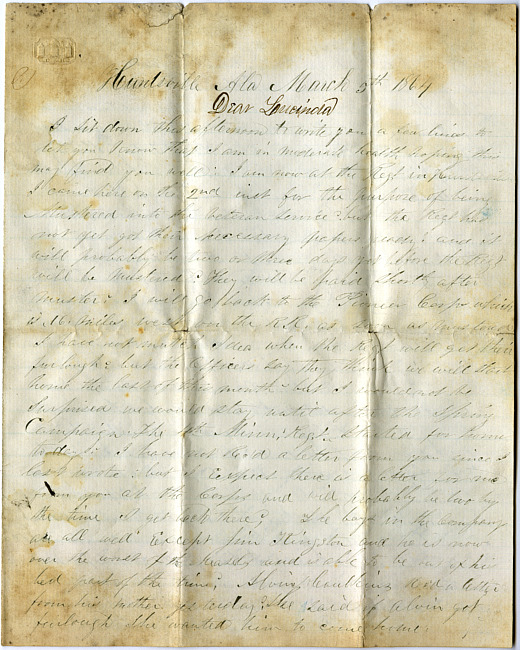 Huntsville Ala March 5th 1864
Dear Loucinda
I sit down this afternoon to write you a few lines to
let you know that I am in moderate health hoping this
may find you well. I am now at the Regt in Huntsville
I came here on the 2nd inst for the purpose of being
Mustered into the Veteran Service but the Regt has
not yet got their necessary papers ready and it
will probably be two or three days yet before the Regt
will be Mustered. They will be paid shortly after
muster. I will go back to the Pioneer Corps which
is 16 Miles west on the R.R. as soon as
I have not much Idea when the Regt will get their
furlough but the Officers say they think we will start
home the last of this month but I would not be
Surprised we would stay until after the Spring
Campaign. The 4th Minn. Regt. Started for home
I have not had a letter from you since I
last wrote but I expect there is a letter for me
from you at the Corps and will probably be two by
the time I get back there. The boys in the company
are all well except Jim Kingston and he is now
over the worst of the measles and is able to be out of his
bed part of the time. had a letter
from his mother yesterday. She said if Alvin got
furlough she wanted him to come home.